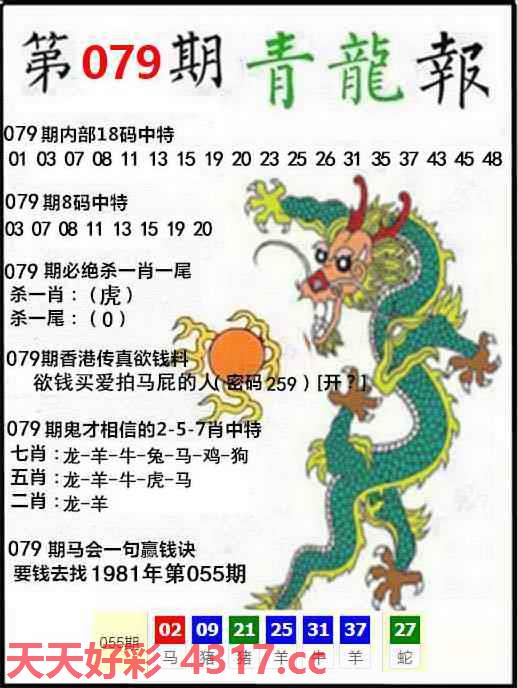 第079期 青龍報
079期内部18码中特
01 03 07 08 11 13 15 19 20 23 25 26 31 35 37 43 45 48
079期8码中特
03 07 08 11 13 15 19 20
079期必绝杀一肖一尾
杀一肖：（虎）
杀一尾：（0）
079期香港传真欲钱料
欲钱买爱拍马屁的人（密码259）[开？]
079期鬼才相信的2-5-7肖中特
七肖：龙-羊-牛-兔-马-鸡-狗
五肖：龙-羊-牛-虎-马
二肖：龙-羊
079期马会一句赢钱诀
要钱去找1981年第055期
055期 02 09 21 25 31 37 27
马 猪 猪 羊 牛 羊 蛇
天天好彩 4317.cc